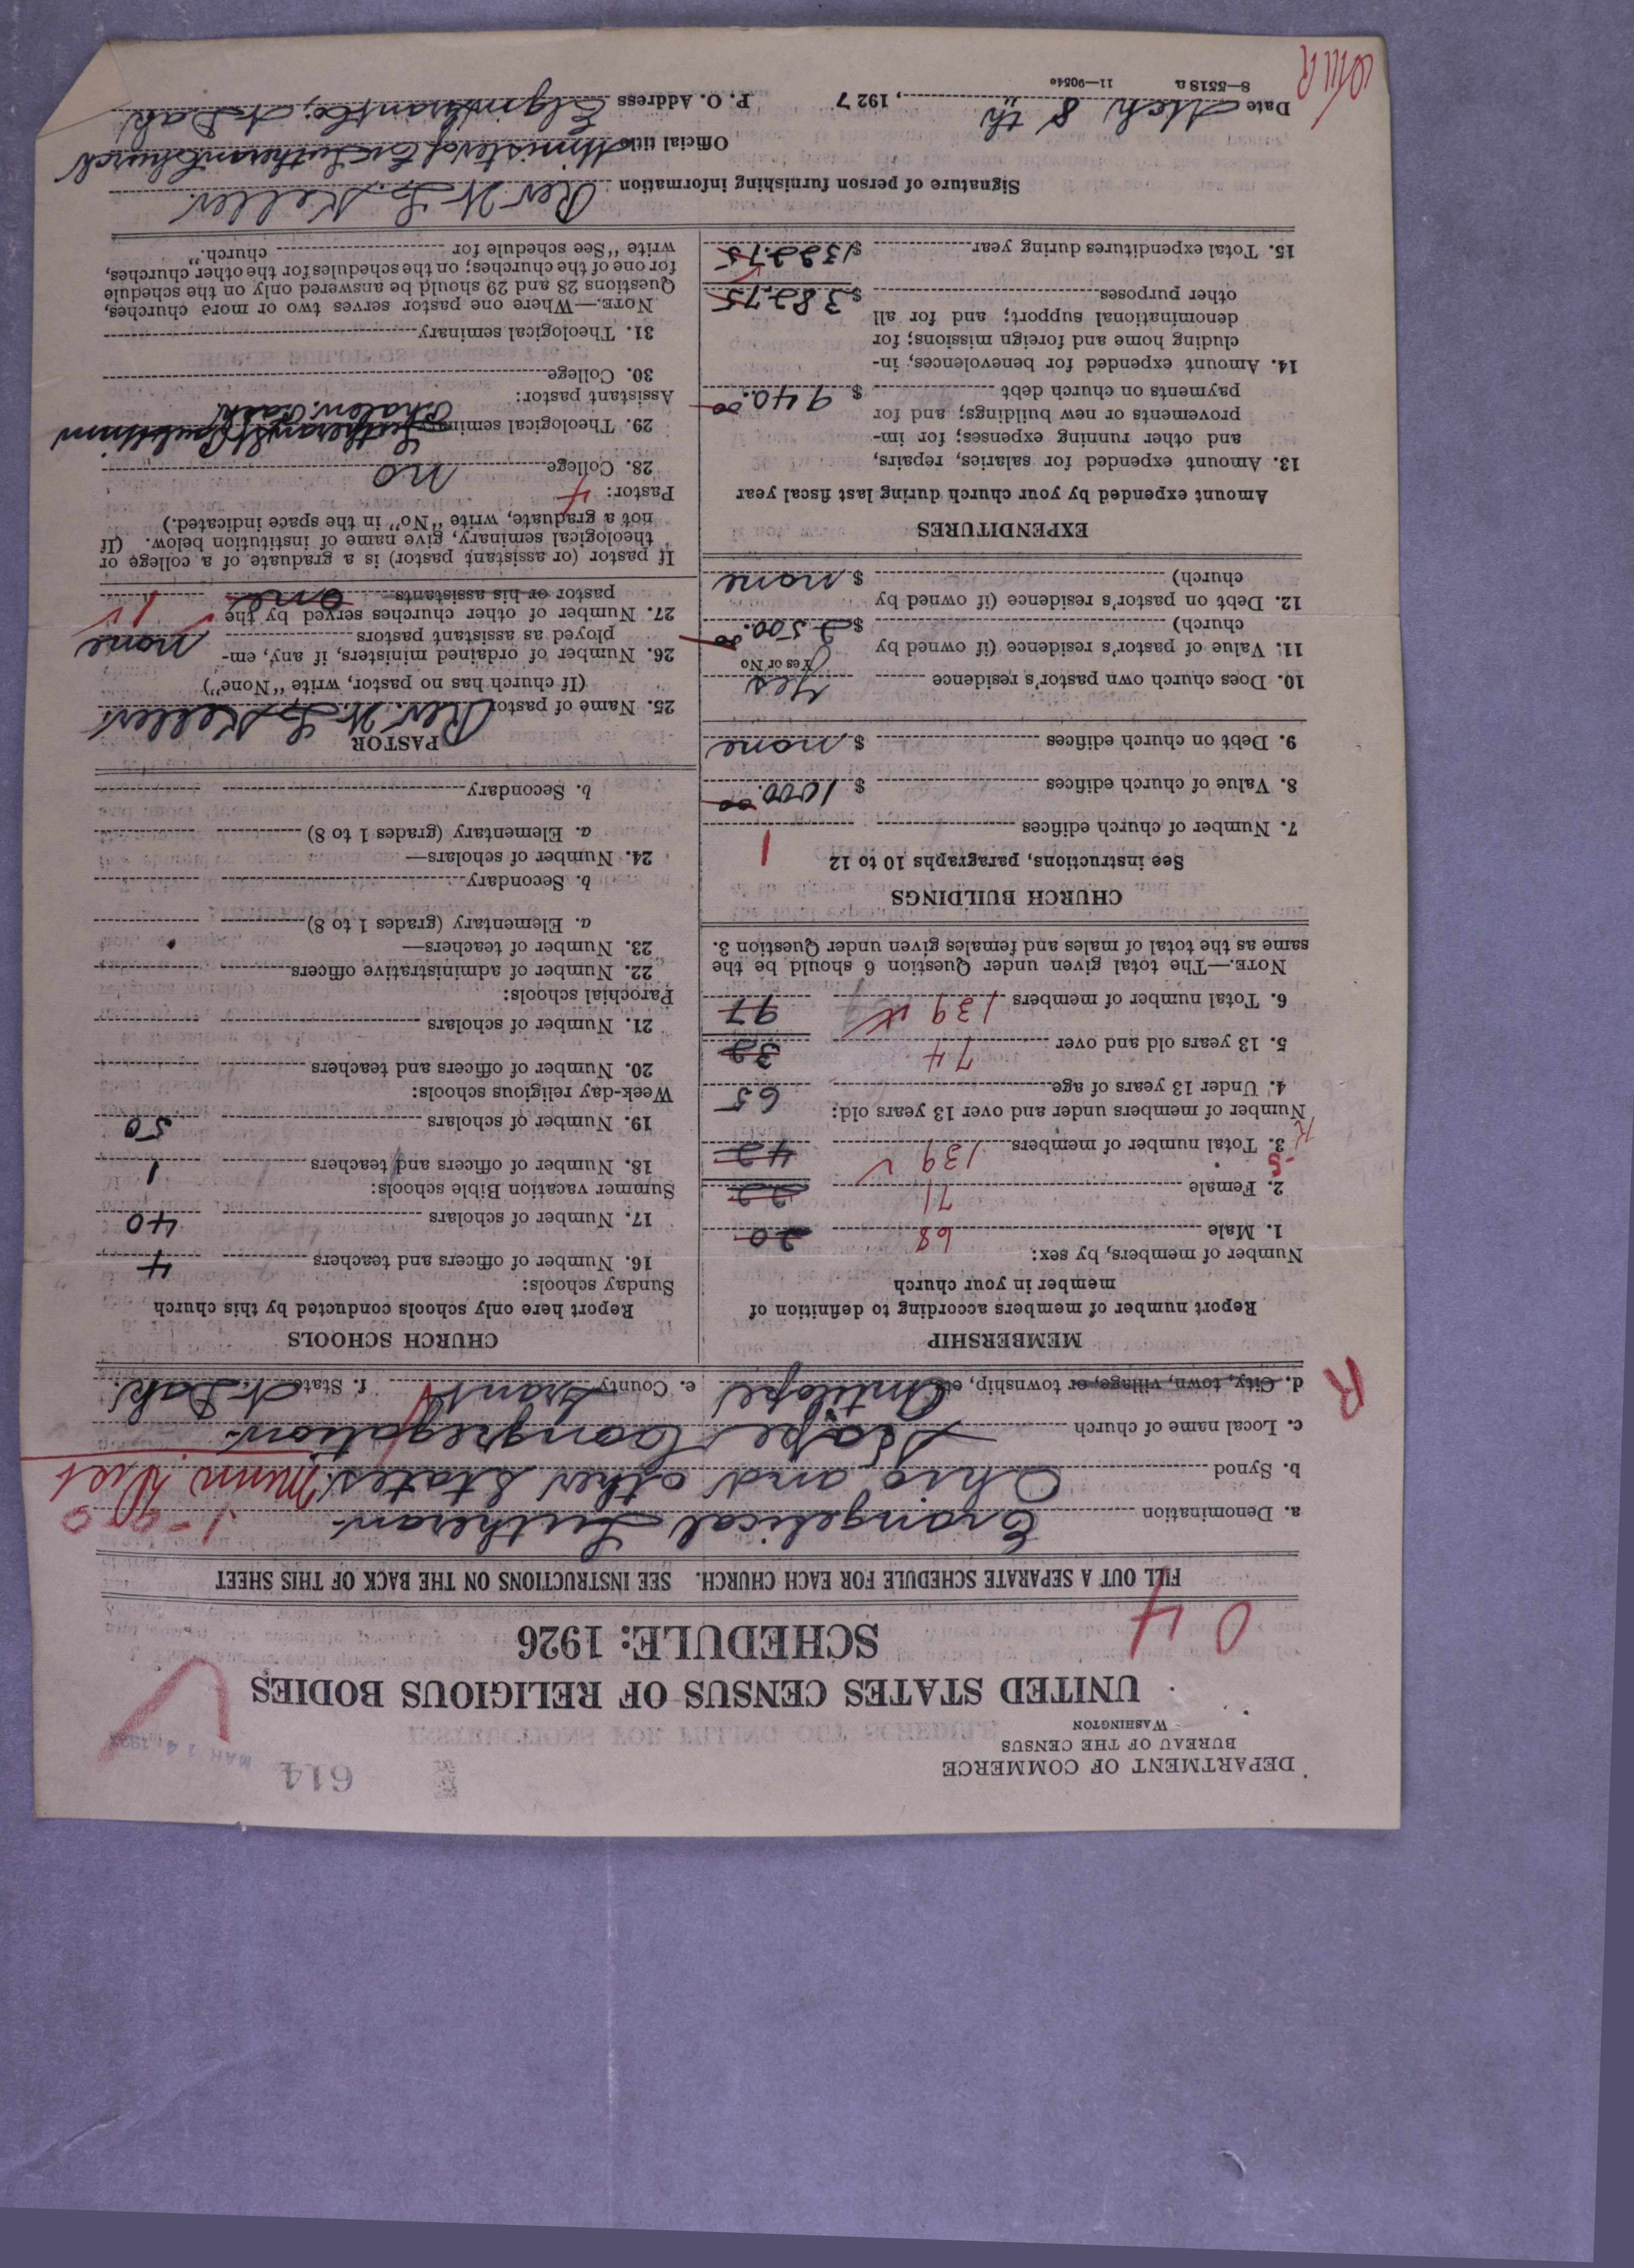 DEPARTMENT OF COMMERCE
BUREAU OF THE CENSUS
WASHINGTON
614
MAR 14 192
UNITED STATES CENSUS OF RELIGIOUS BODIES
SCHEDULE: 1926
04
FILL OUT A SEPARATE SCHEDULE FOR EACH CHURCH. SEE INSTRUCTIONS ON THE BACK OF THIS SHEET
a. Denomination Evangelical Lutheran
b. Synod Ohio and other States. Minn Dist
c. Local name of church Hope Congregation
d. City, town, village, or township, etc. Antilope e. County Grant f. State N. Dak.
R
MEMBERSHIP
Report number of members according to definition of
member in your church
Number of members, by sex:
1. Male 68 20
2. Female 71 22
3. Total number of members 139 42
Number of members under and over 13 years old:
4. Under 13 years of age 65
5. 13 years old and over 74 32
6. Total number of members 139 97
NOTE.—The total given under Question 6 should be the
same as the total of males and females given under Question 3.
CHURCH BUILDINGS
See instructions, paragraphs 10 to 12
7. Number of church edifices 1
8. Value of church edifices $ 1000.00
9. Debt on church edifices $ none
10. Does church own pastor's residence yes
Yes or No
11. Value of pastor's residence (if owned by
church) $ 2500.00
12. Debt on pastor's residence (if owned by
church) $ none
EXPENDITURES
Amount expended by your church during last fiscal year
13. Amount expended for salaries, repairs,
and other running expenses; for im-
provements or new buildings; and for
payments on church debt $ 940.00
14. Amount expended for benevolences, in-
cluding home and foreign missions; for
denominational support; and for all
other purposes $ 382.75
15. Total expenditures during year $ 1322.75
CHURCH SCHOOLS
Report here only schools conducted by this church
Sunday schools:
16. Number of officers and teachers 4
17. Number of scholars 40
Summer vacation Bible schools:
18. Number of officers and teachers 1
19. Number of scholars 50
Week-day religious schools:
20. Number of officers and teachers
21. Number of scholars
Parochial schools:
22. Number of administrative officers
23. Number of teachers—
a. Elementary (grades 1 to 8)
b. Secondary
24. Number of scholars—
a. Elementary (grades 1 to 8)
b. Secondary
PASTOR
25. Name of pastor Rev. W. L. Keller
(If church has no pastor, write "None")
26. Number of ordained ministers, if any, em-
ployed as assistant pastors none
27. Number of other churches served by the
pastor or his assistants one 1
If pastor (or assistant pastor) is a graduate of a college or
theological seminary, give name of institution below. (If
not a graduate, write "No" in the space indicated.)
Pastor: 4
28. College no
29. Theological seminary Lutheran St Paul Minn
Phalen Park
Assistant pastor:
30. College
31. Theological seminary
NOTE.—Where one pastor serves two or more churches,
Questions 28 and 29 should be answered only on the schedule
for one of the churches; on the schedules for the other churches,
write "See schedule for church."
Signature of person furnishing information Rev. W. L. Keller
Official title Minister of Ev. Lutheran Church
Date Mch 8 th, 1927 P. O. Address Elgin Grant Co; N. Dak.
8—5518 a 11—9054e